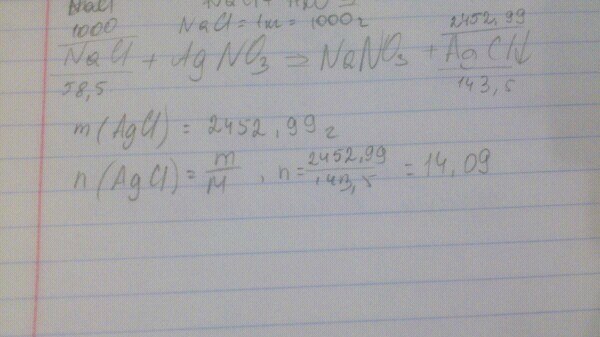 NaCl
1000 NaCl = 1кг = 1000 г 2452,99
NaCl + AgNO3 => NaNO3 + AgCl↓
58,5 143,5
m (AgCl) = 2452,99 г
n (AgCl) = m/M , n = 2452,99/143,5 = 14,09